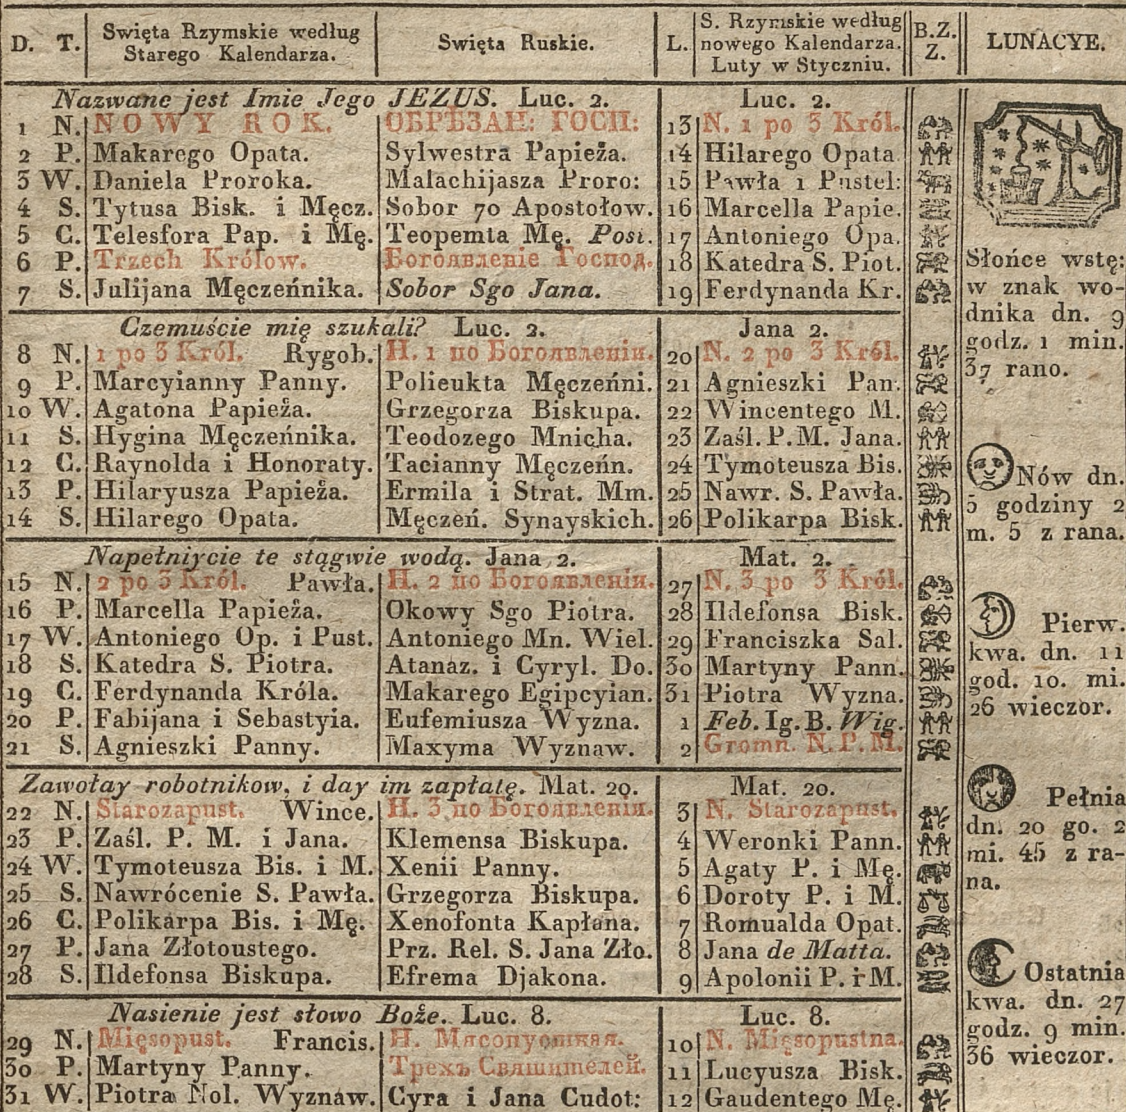 D. T. Swięta Rzymskie według Starego Kalendarza. Swięta Ruskie. L. S. Rzymskie według nowego Kalendarza. Luty w Styczniu. B.Z. Z. LUNACYE.
Nazwane jest Imie Jego JEZUS. Luc. 2. Luc. 2.
1 N. NOWY ROK. ОБРѢЗАН: ГОСП: 13 N. 1 po 3 Król.
2 P. Makarego Opata. Sylwestra Papieża. 14 Hilarego Opata
3 W. Daniela Proroka. Malachijasza Proro: 15 Pawła 1 Pustel:
4 S. Tytusa Bisk. i Męcz. Sobor 70 Apostołow. 16 Marcella Papie.
5 C. Telesfora Pap. i Mę. Teopemta Mę. Post. 17 Antoniego Opa.
6 P. Trzech Królow. Богоявленіе Господ. 18 Katedra S. Piot.
7 S. Julijana Męczeńnika. Sobor Sgo Jana. 19 Ferdynanda Kr.
Czemuście mię szukali? Luc. 2. Jana 2.
8 N. 1 po 3 Król. Rygob. Н. 1 по Богоявленіи. 20 N. 2 po 3 Król.
9 P. Marcyianny Panny. Polieukta Męczeńni. 21 Agnieszki Pan.
10 W. Agatona Papieża. Grzegorza Biskupa. 22 Wincentego M.
11 S. Hygina Męczeńnika. Teodozego Mnicha. 23 Zaśl. P.M. Jana.
12 C. Raynolda i Honoraty. Tacianny Męczeńn. 24 Tymoteusza Bis.
13 P. Hilaryusza Papieża. Ermila i Strat. Mm. 25 Nawr. S. Pawła.
14 S. Hilarego Opata. Męczeń. Synayskich. 26 Polikarpa Bisk.
Napełniycie te stągwie wodą. Jana 2. Mat. 2.
15 N. 2 po 3 Król. Pawła. Н. 2 по Богоявленіи. 27 N. 3 po 3 Król.
16 P. Marcella Papieża. Okowy Sgo Piotra. 28 Ildefonsa Bisk.
17 W. Antoniego Op. i Pust. Antoniego Mn. Wiel. 29 Franciszka Sal.
18 S. Katedra S. Piotra. Atanaz. i Cyryl. Do. 30 Martyny Pann.
19 C. Ferdynanda Króla. Makarego Egipcyian. 31 Piotra Wyzna.
20 P. Fabijana i Sebastyia. Eufemiusza Wyzna. 1 Feb. Ig. B. Wig.
21 S. Agnieszki Panny. Maxyma Wyznaw. 2 Gromn. N. P. M.
Zawołay robotnikow, i day im zapłatę. Mat. 20. Mat. 20.
22 N. Starozapust. Wince. Н. 3 по Богоявленіи. 3 N. Starozapust.
23 P. Zaśl. P. M. i Jana. Klemensa Biskupa. 4 Weronki Pann.
24 W. Tymoteusza Bis. i M. Xenii Panny. 5 Agaty P. i Mę.
25 S. Nawrócenie S. Pawła. Grzegorza Biskupa. 6 Doroty P. i M.
26 C. Polikarpa Bis. i Mę. Xenofonta Kapłana. 7 Romualda Opat.
27 P. Jana Złotoustego. Prz. Rel. S. Jana Zło. 8 Jana de Matta.
28 S. Ildefonsa Biskupa. Efrema Djakona. 9 Apolonii P. i M.
Nasienie jest słowo Boże. Luc. 8. Luc. 8.
29 N. Mięsopust. Francis. Н. Мясопустная. 10 N. Mięsopustna.
30 P. Martyny Panny. Трехъ Святителей. 11 Lucyusza Bisk.
31 W. Piotra Nol. Wyznaw. Cyra i Jana Cudot: 12 Gaudentego Mę.
Słońce wstę:
w znak wo-
dnika dn. 9
godz. 1 min.
37 rano.
Nów dn.
5 godziny 2
m. 5 z rana.
Pierw.
kwa. dn. 11
god. 10. mi.
26 wieczor.
Pełnia
dn. 20 go. 2
mi. 45 z ra-
na.
Ostatnia
kwa. dn. 27
godz. 9 min.
36 wieczor.